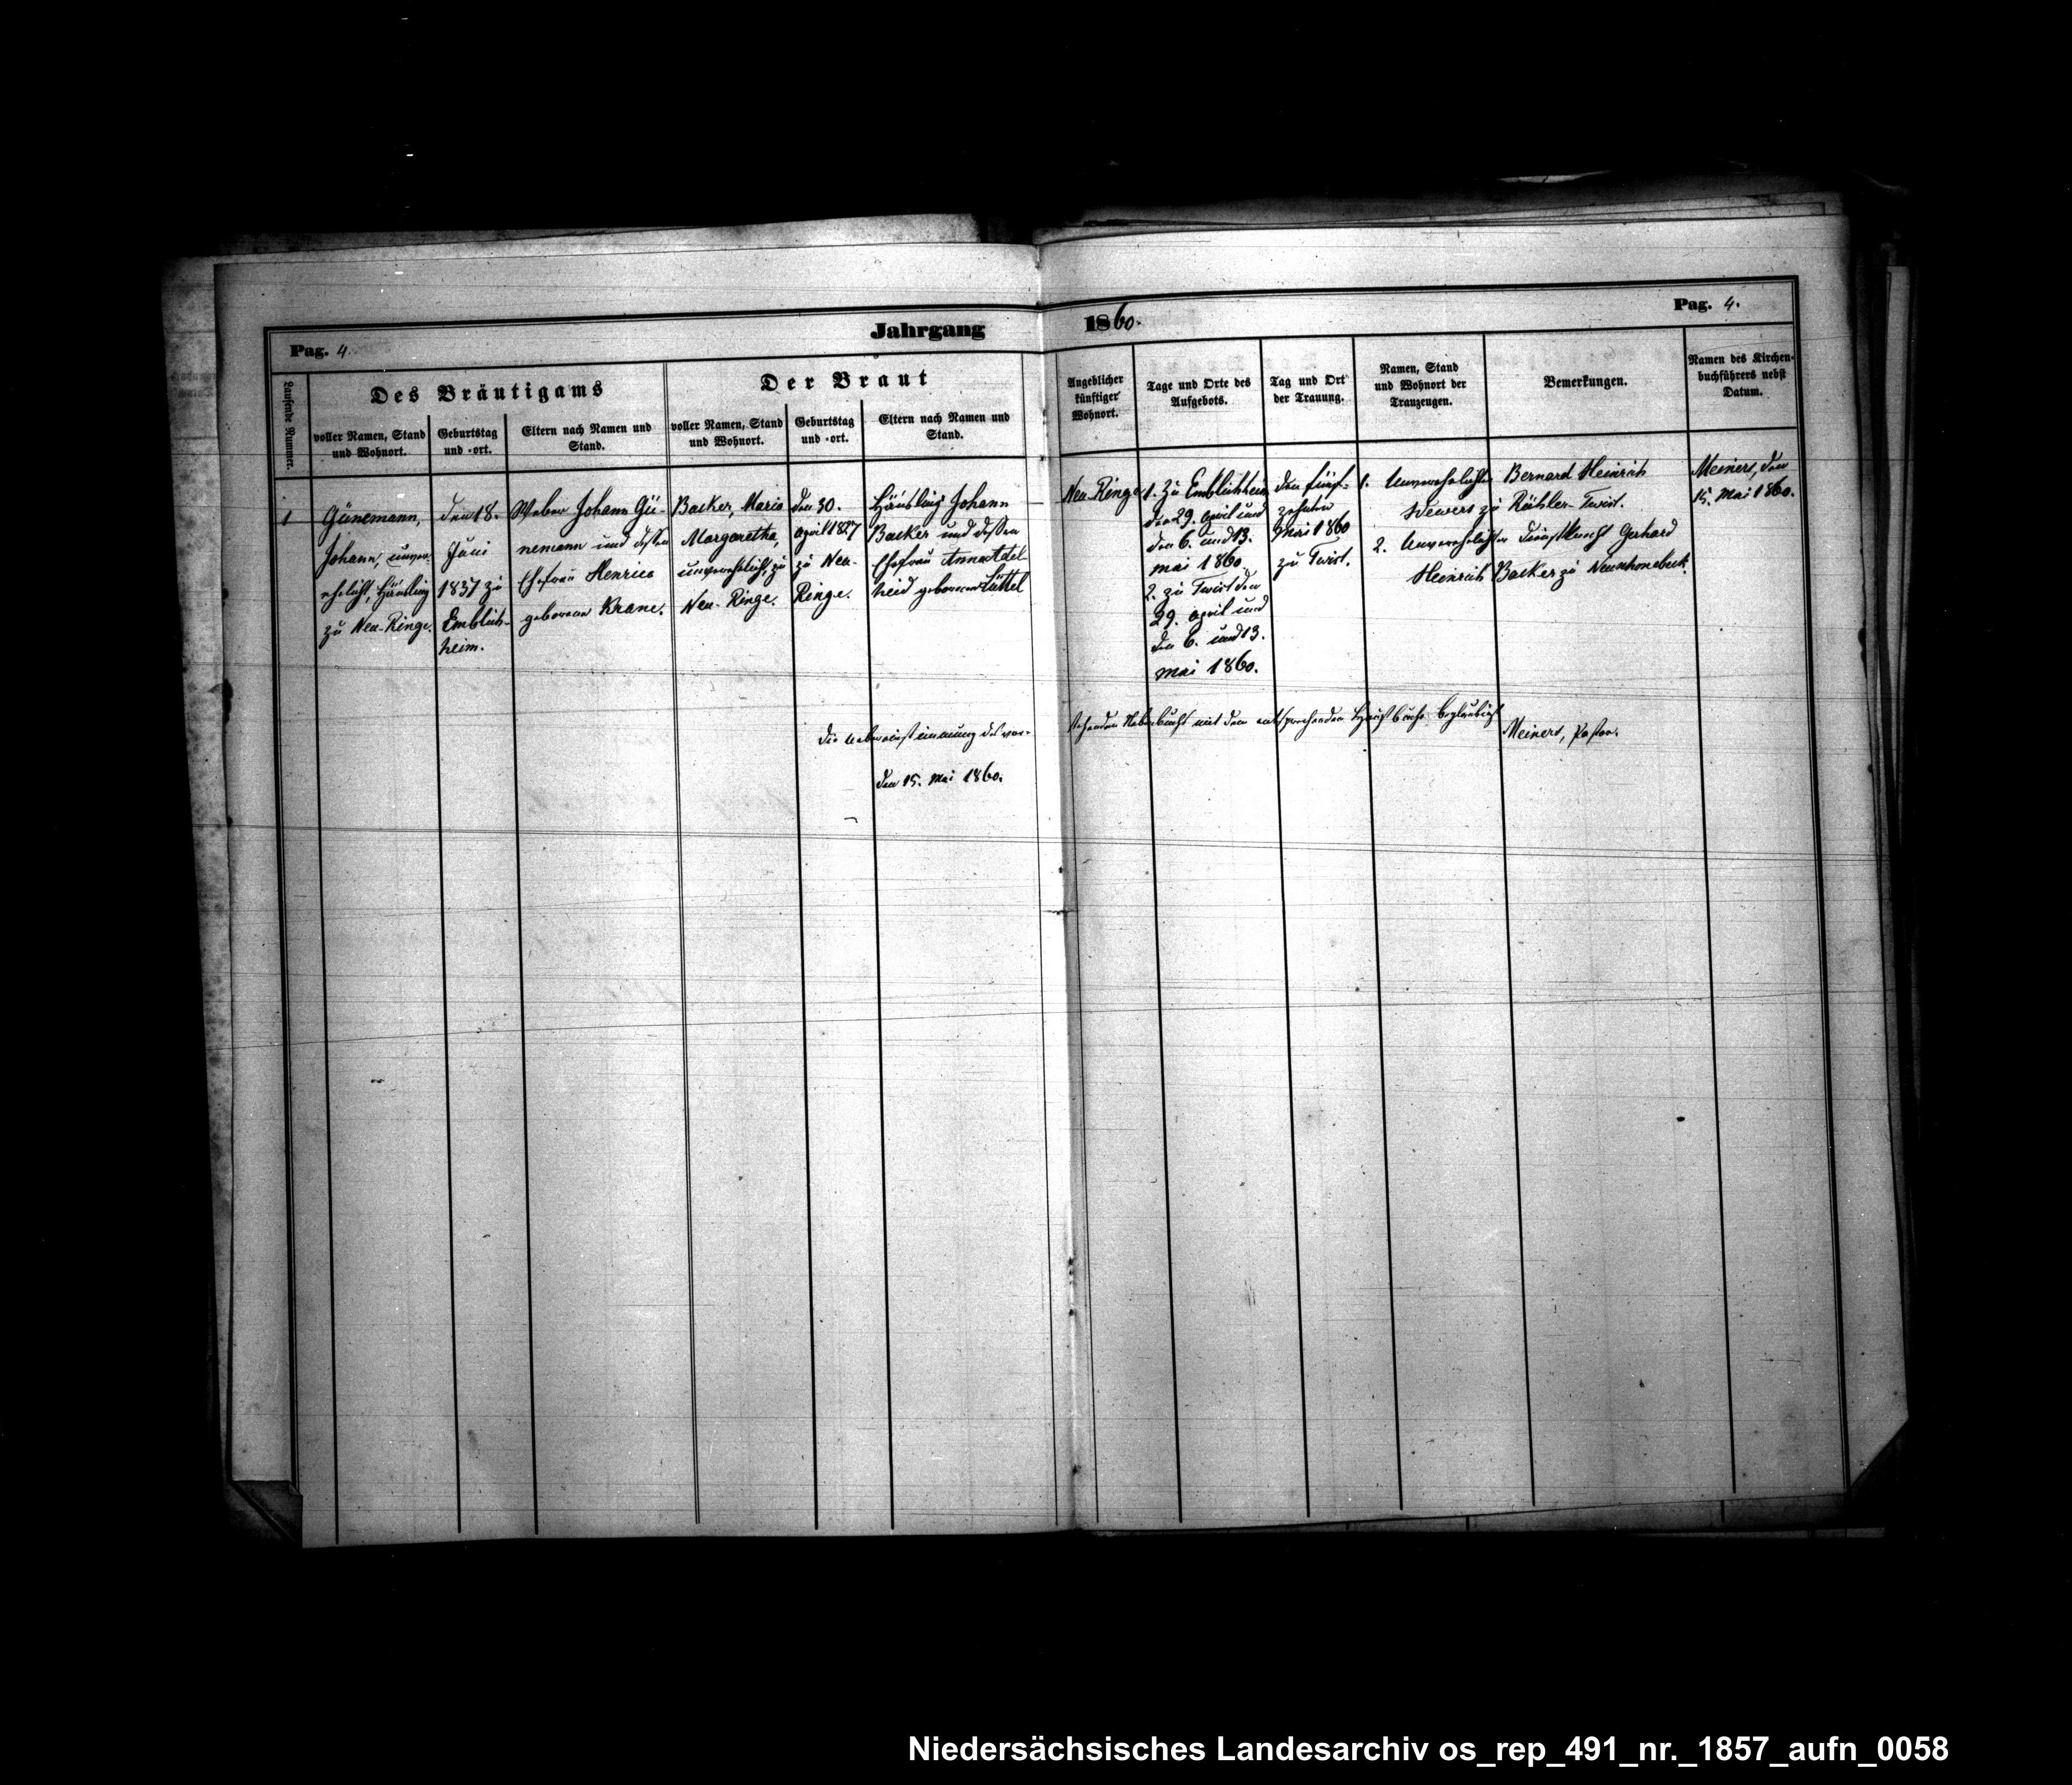 Jahrgang 1860.
Pag. 4.
Pag. 4.
Laufende Nummer.
Des Bräutigams
voller Namen, Stand
und Wohnort.
Geburtstag
und -ort.
Eltern nach Namen und
Stand.
Der Braut
voller Namen, Stand
und Wohnort.
Geburtstag
und -ort.
Eltern nach Namen und
Stand.
Angeblicher
künftiger
Wohnort.
Tage und Orte des
Aufgebots.
Tag und Ort
der Trauung.
Namen, Stand
und Wohnort der
Trauzeugen.
Bemerkungen.
Namen des Kirchen-
buchführers nebst
Datum.
1
Günemann,
Johann, unver-
ehelicht, Häusling
zu Neu-Ringe.
den 18.
Juni
1837 zu
Emblich-
heim.
Weber Johann Gü-
nemann und dessen
Ehefrau Henrica
geborene Krane.
Backer, Maria
Margaretha,
unverehelicht, zu
Neu-Ringe.
den 30.
April 1827
zu Neu-
Ringe.
Häusling Johann
Backer und dessen
Ehefrau Anna Adel-
heid geborene Lüttel
Neu-Ringe.
1. Zu Emblichheim
den 29. April und
den 6. und 13.
Mai 1860.
2. zu Twist den
29. April und
den 6. und 13.
Mai 1860.
den fünf-
zehnten
Mai 1860
zu Twist.
1. Unverehelichter Bernard Heinrich
Wewers zu Rühler-Twist.
2. Unverehelichter Dienstknecht Gerhard
Heinrich Backer zu Neuschonebeck.
Meiners, den
15. Mai 1860.
Die Uebereinstimmung des vor-
stehenden Nebenbuchs mit dem entsprechenden Hauptbuche beglaubigt
Meiners, Pastor.
den 15. Mai 1860.
Niedersächsisches Landesarchiv os_rep_491_nr._1857_aufn_0058